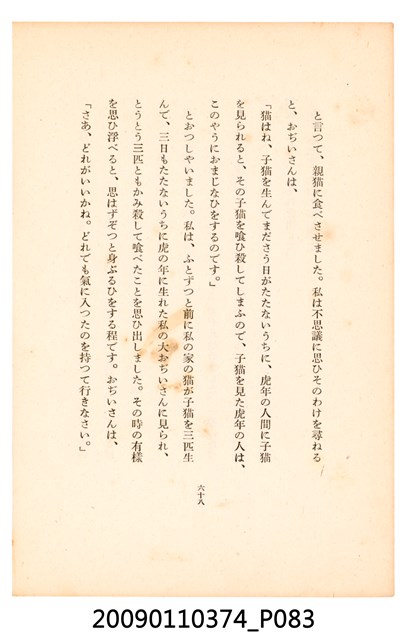 と言つて、親猫に食べさせました。私は不思議に思ひそのわけを尋ねる
と、おぢいさんは、
「猫はね、子猫を生んでまださう日がたたないうちに、虎年の人間に子猫
を見られると、その子猫を喰ひ殺してしまふので、子猫を見た虎年の人は、
このやうにおまじなひをするのです。」
とおつしやいました。私は、ふとずつと前に私の家の猫が子猫を三匹生
んで、三日もたたないうちに虎の年に生れた私の大おぢいさんに見られ、
とうとう三匹ともかみ殺して喰べたことを思ひ出しました。その時の有樣
を思ひ浮べると、思はずぞつと身ぶるひをする程です。おぢいさんは、
「さあ、どれがいいかね。どれでも氣に入つたのを持つて行きなさい。」
六十八
20090110374_P083